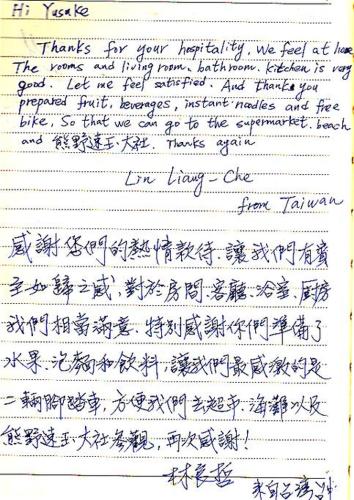 Hi Yusuke
Thanks for your hospitality. We feel at home
The rooms and living room. bathroom. kitchen is very
good. Let me feel satisfied. And thank you
prepared fruit, beverages, instant noodles and free
bike. So that we can go to the supermarket. beach
and 熊野速玉大社. Thanks again
Lin Liang-Che
from Taiwan
感謝您們的熱情款待.讓我們有賓
至如歸之感,對於房間.客廳.浴室.廚房
我們相當滿意.特別感謝你們準備了
水果.泡麵和飲料,讓我們最感激的是
二輛腳踏車,方便我們去超市.海灘以及
熊野速玉大社參觀,再次感謝!
林良哲
來自台灣